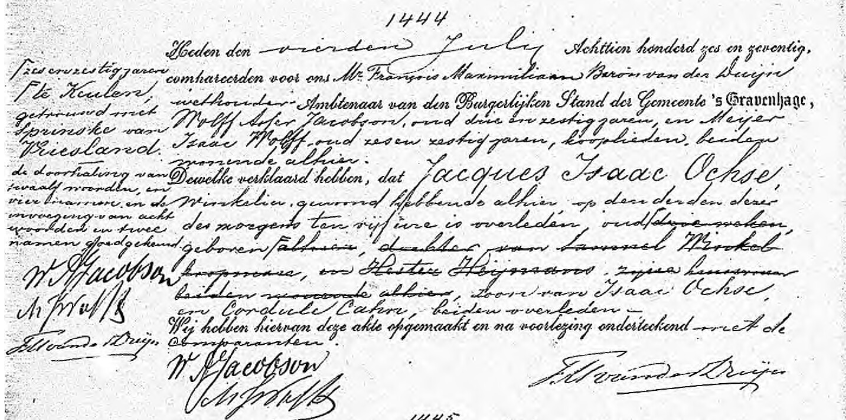 1444
Heden den vierden July Achttien honderd zes en zeventig,
compareerden voor ons Mr. François Maximiliaan Baron van der Duijn
wethouder Ambtenaar van den Burgerlijken Stand der Gemeente 's Gravenhage,
Wolff Aser Jacobson, oud drie en zestig jaren, en Meijer
Isaac Wolff, oud zes en zestig jaren, kooplieden, beiden
wonende alhier.
Dewelke verklaard hebben, dat Jacques Isaac Ochse,
winkelier, gewoond hebbende alhier, op den derden dezer
des morgens ten vijf ure is overleden, oud drie weken,
geboren alhier, dochter van Samuel Winkel
koopman, en Hester Heijmans, zijne huisvrouw
beiden wonende alhier, zoon van Isaac Ochse,
en Cordule Cahn, beiden overleden
Wij hebben hiervan deze akte opgemaakt en na voorlezing onderteekend met de
comparanten.
zes en zestig jaren
te Keulen,
getrouwd met
Sprinske van
Vriesland
de doorhaling van
twaalf woorden, en
vier namen, en de
invoeging van acht
woorden en twee
namen goedgekeurd
W A Jacobson
M J Wolff
F M van der Duijn
W A Jacobson
M J Wolff
F M van der Duijn
1445